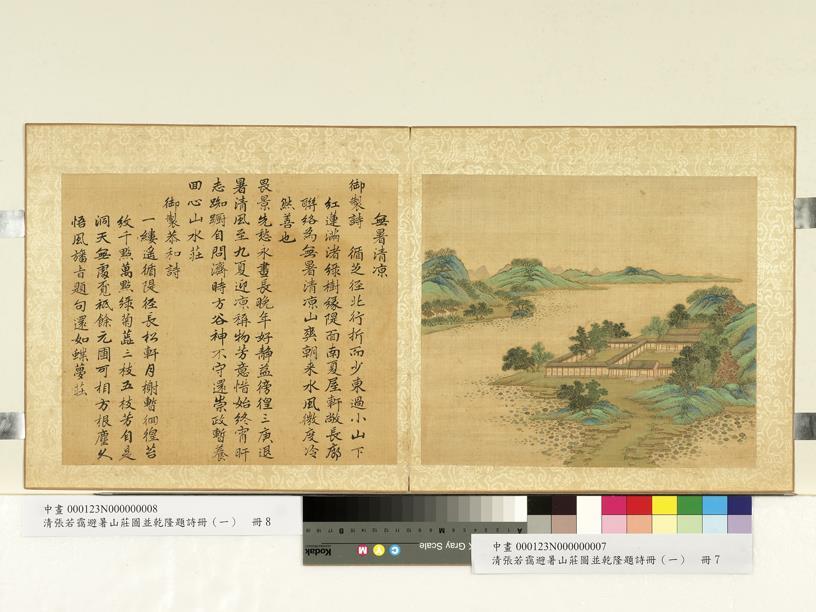 無暑清凉
御製詩 循芝徑北行折而少東過小山下
紅蓮滿渚綠樹緣隄面南夏屋軒敞長廊
聯絡為無暑清凉山爽朝來水風微度冷
然善也
畏景先愁永晝長晚年好靜益徬徨三庚退
暑清風至九夏迎凉稱物芳意惜始終宵旰
志踟躕自問濟時方谷神不守還崇政暫養
回心山水莊
御製恭和詩
一縷遙循隄徑長松軒月榭暫徊徨苔
紋千點萬點綠菊蕋三枝五枝芳自是
洞天無處覓祗餘元圃可相方根塵久
悟風旛旨題句還如蝶夢莊
中畫 000123N000000008
清張若靄避暑山莊圖並乾隆題詩冊（一） 冊8
中畫 000123N000000007
清張若靄避暑山莊圖並乾隆題詩冊（一） 冊7
Kodak
Gray Scale
C Y M